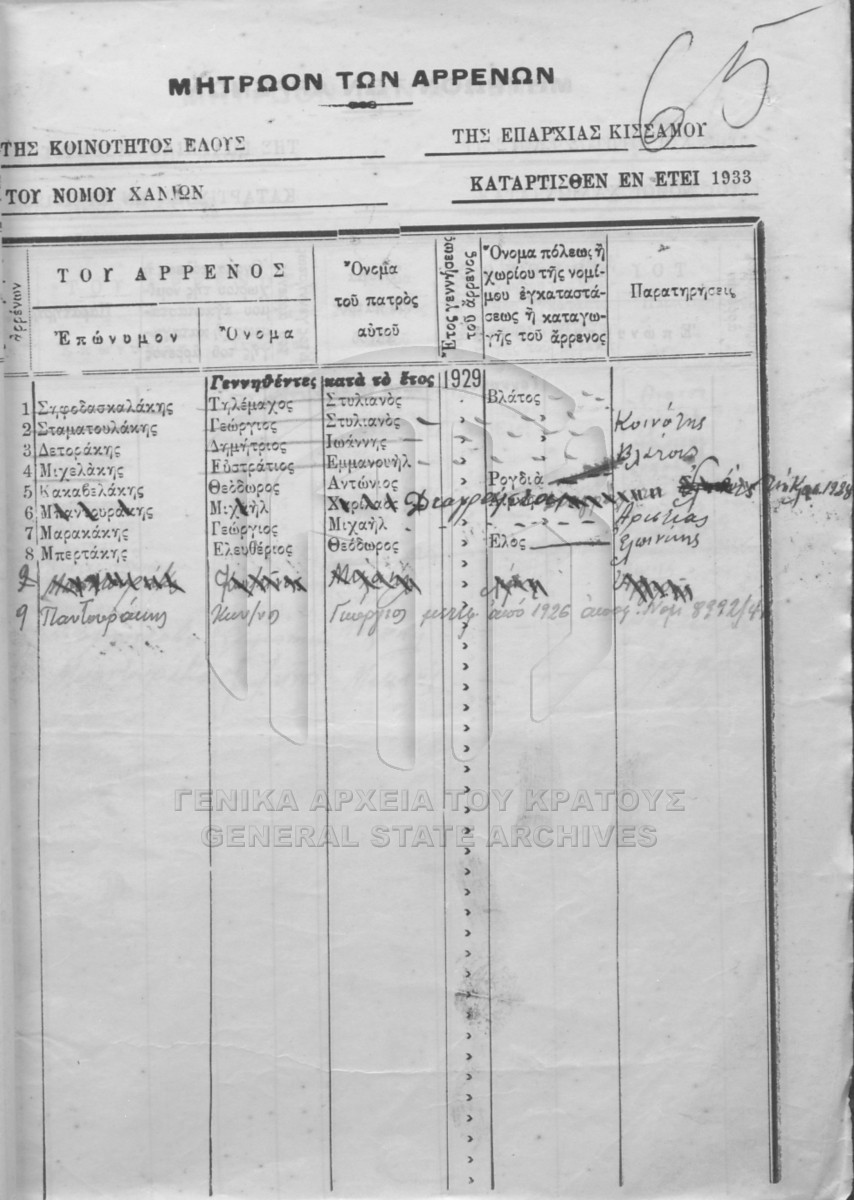 65
ΜΗΤΡΩΟΝ ΤΩΝ ΑΡΡΕΝΩΝ
ΤΗΣ ΚΟΙΝΟΤΗΤΟΣ ΕΛΟΥΣ
ΤΗΣ ΕΠΑΡΧΙΑΣ ΚΙΣΣΑΜΟΥ
ΤΟΥ ΝΟΜΟΥ ΧΑΝΙΩΝ
ΚΑΤΑΡΤΙΣΘΕΝ ΕΝ ΕΤΕΙ 1933
ἀρρένων
ΤΟΥ ΑΡΡΕΝΟΣ
Ἐπώνυμον Ὄνομα
Ὄνομα
τοῦ πατρὸς
αὐτοῦ
Ἔτος γεννήσεως
τοῦ ἄρρενος
Ὄνομα πόλεως ἢ
χωρίου τῆς νομί-
μου ἐγκαταστά-
σεως ἢ καταγω-
γῆς τοῦ ἄρρενος
Παρατηρήσεις
Γεννηθέντες κατὰ τὸ ἔτος 1929
1 Σηφοδασκαλάκης Τηλέμαχος Στυλιανὸς Βλάτος
2 Σταματουλάκης Γεώργιος Στυλιανὸς Κοινότης
3 Δετοράκης Δημήτριος Ἰωάννης Βλάτους
4 Μιχελάκης Εὐστράτιος Ἐμμανουὴλ
5 Κακαβελάκης Θεόδωρος Ἀντώνιος Ρογδιὰ
6 Μιχαὴλ Διαγράφεται
7 Μαρακάκης Γεώργιος Μιχαὴλ
8 Μπερτάκης Ἐλευθέριος Θεόδωρος Ἕλος
9 Παντουράκης Κων/νος Γεώργιος ἀπὸ 1926 Νομ 8992/4
ΓΕΝΙΚΑ ΑΡΧΕΙΑ ΤΟΥ ΚΡΑΤΟΥΣ
GENERAL STATE ARCHIVES